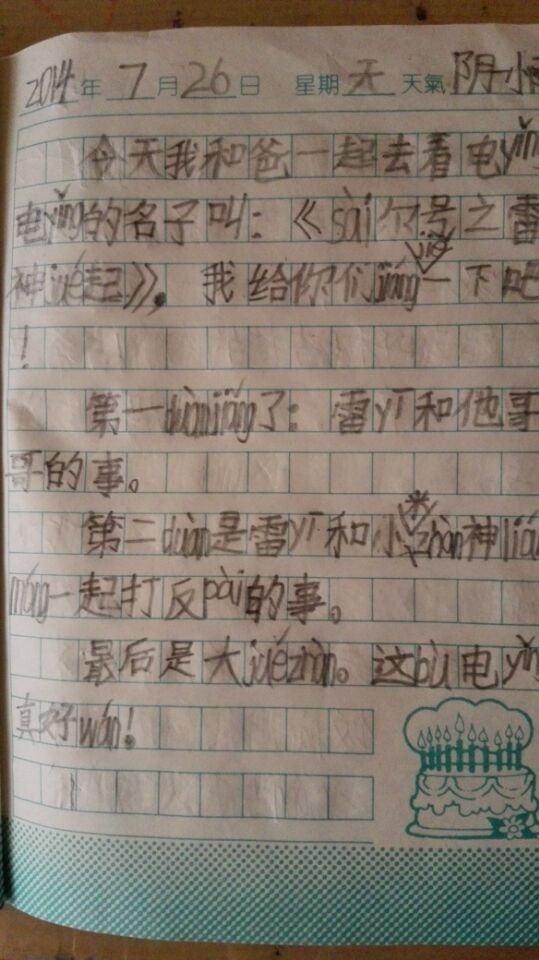 2014年 7月26日 星期天 天氣 阴 小
今天我和爸一起去看电yǐng
电yǐng的名子叫：《sài尔号之雷
神jué起》，我给你们jiǎng一下吧
！
第一duànjiǎng了：雷yī和他哥
哥的事。
第二duàn是雷yī和小zhàn神lián
méng一起打反pài的事。
最后是大juézhàn。这bù电yǐng
真好wán！